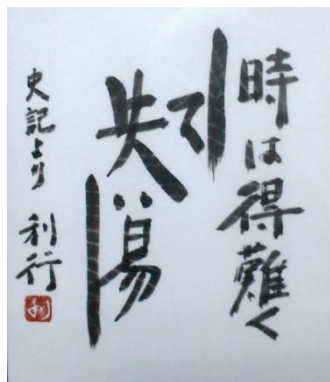 時は得難く
して失い易し
史記より 利行
利